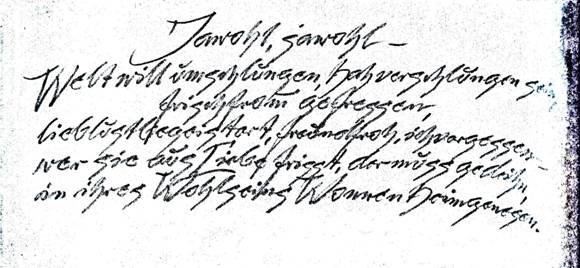 Jawohl, jawohl —
Welt will umschlungen, hah verschlungen sein,
frischfrom gefressen,
lieblustbegeistert, freundfroh, ichvergessen —
wer sie aus Liebe frisst, der muss gedeihn,
in ihres Wohlseins Wonnen heimgenesen.